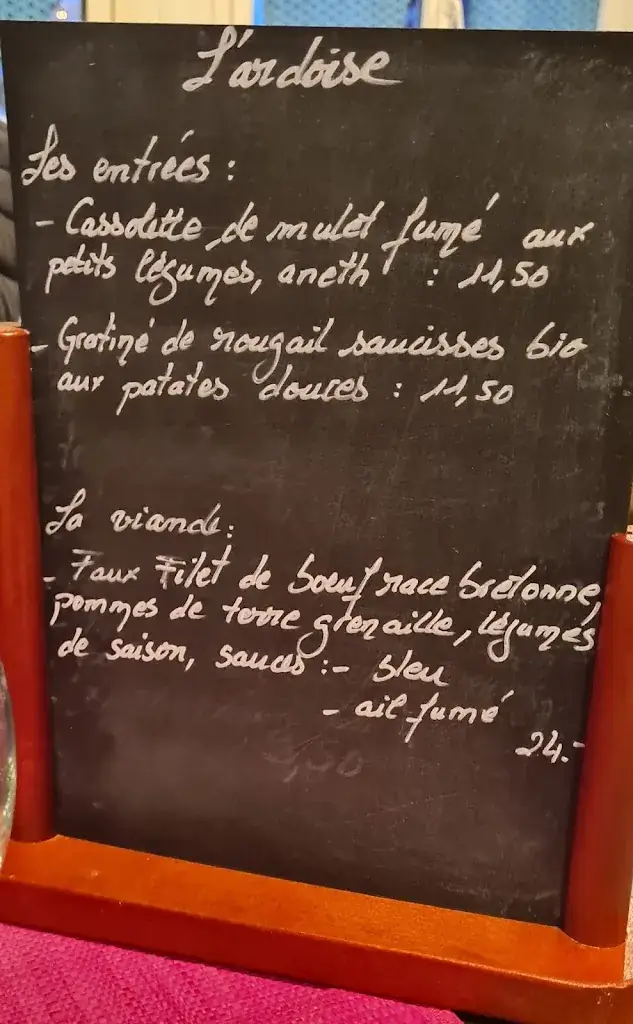 L'ardoise
Les entrées :
- Cassolette de mulet fumé aux
petits légumes, aneth : 11,50
- Gratiné de rougail saucisses bio
aux patates douces : 11,50
La viande :
- Faux Filet de boeuf race bretonne,
pommes de terre grenaille, légumes
de saison, sauces : - bleu
- ail fumé
24.-